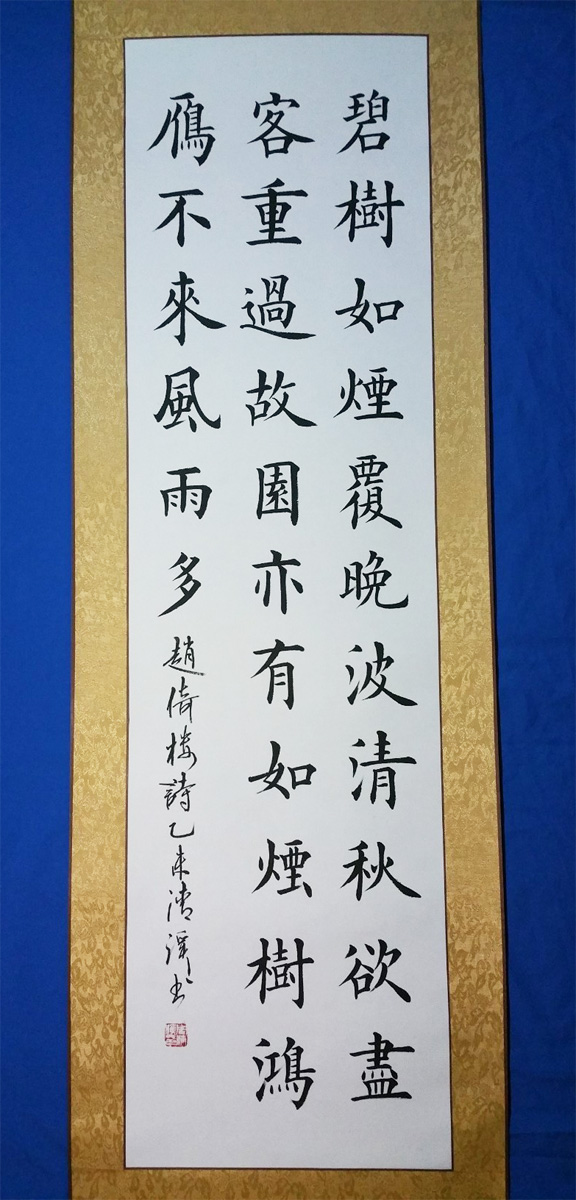 碧樹如煙覆晚波清秋欲盡
客重過故園亦有如煙樹鴻
鴈不來風雨多
趙倚楼詩乙未清书